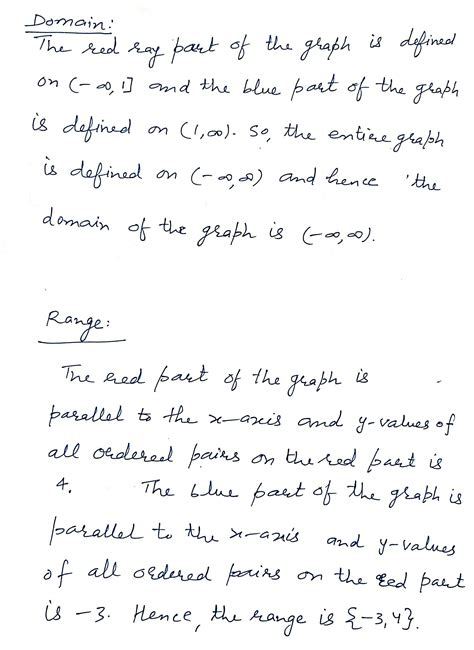 Domain:
The red ray part of the graph is defined
on (-∞, 1] and the blue part of the graph
is defined on (1,∞). So, the entire graph
is defined on (-∞,∞) and hence the
domain of the graph is (-∞,∞).
Range:
The red part of the graph is
parallel to the x-axis and y-values of
all ordered pairs on the red part is
4. The blue part of the graph is
parallel to the x-axis and y-values
of all ordered pairs on the red part
is -3. Hence, the range is {-3,4}.